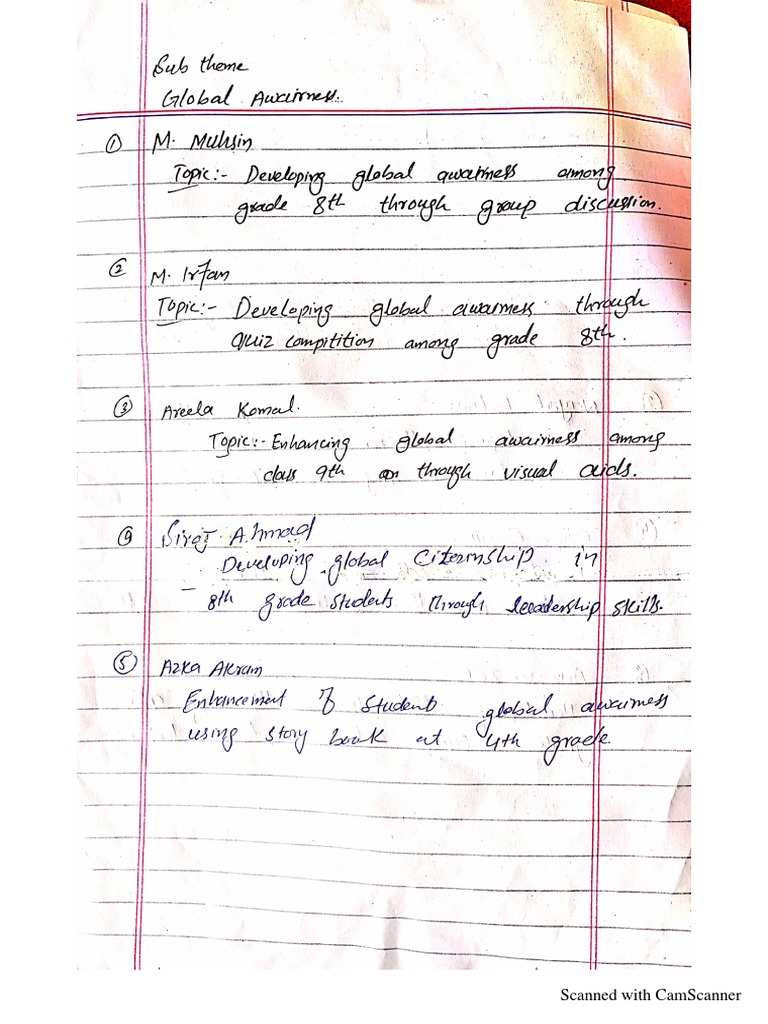 Sub theme
Global Awairness.
① M. Muhsin
Topic:- Developing global awairness among
grade 8th through group discussion.
② M. Irfan
Topic:- Developing global awairness through
quiz compitition among grade 8th.
③ Areela Komal.
Topic:- Enhancing global awairness among
class 9th through visual aids.
④ Siraj Ahmad
Developing global Citizenship in
8th grade students through leadership skills.
⑤ Azka Akram
Enhancement of Students global awairness
using story book at 4th grade
Scanned with CamScanner